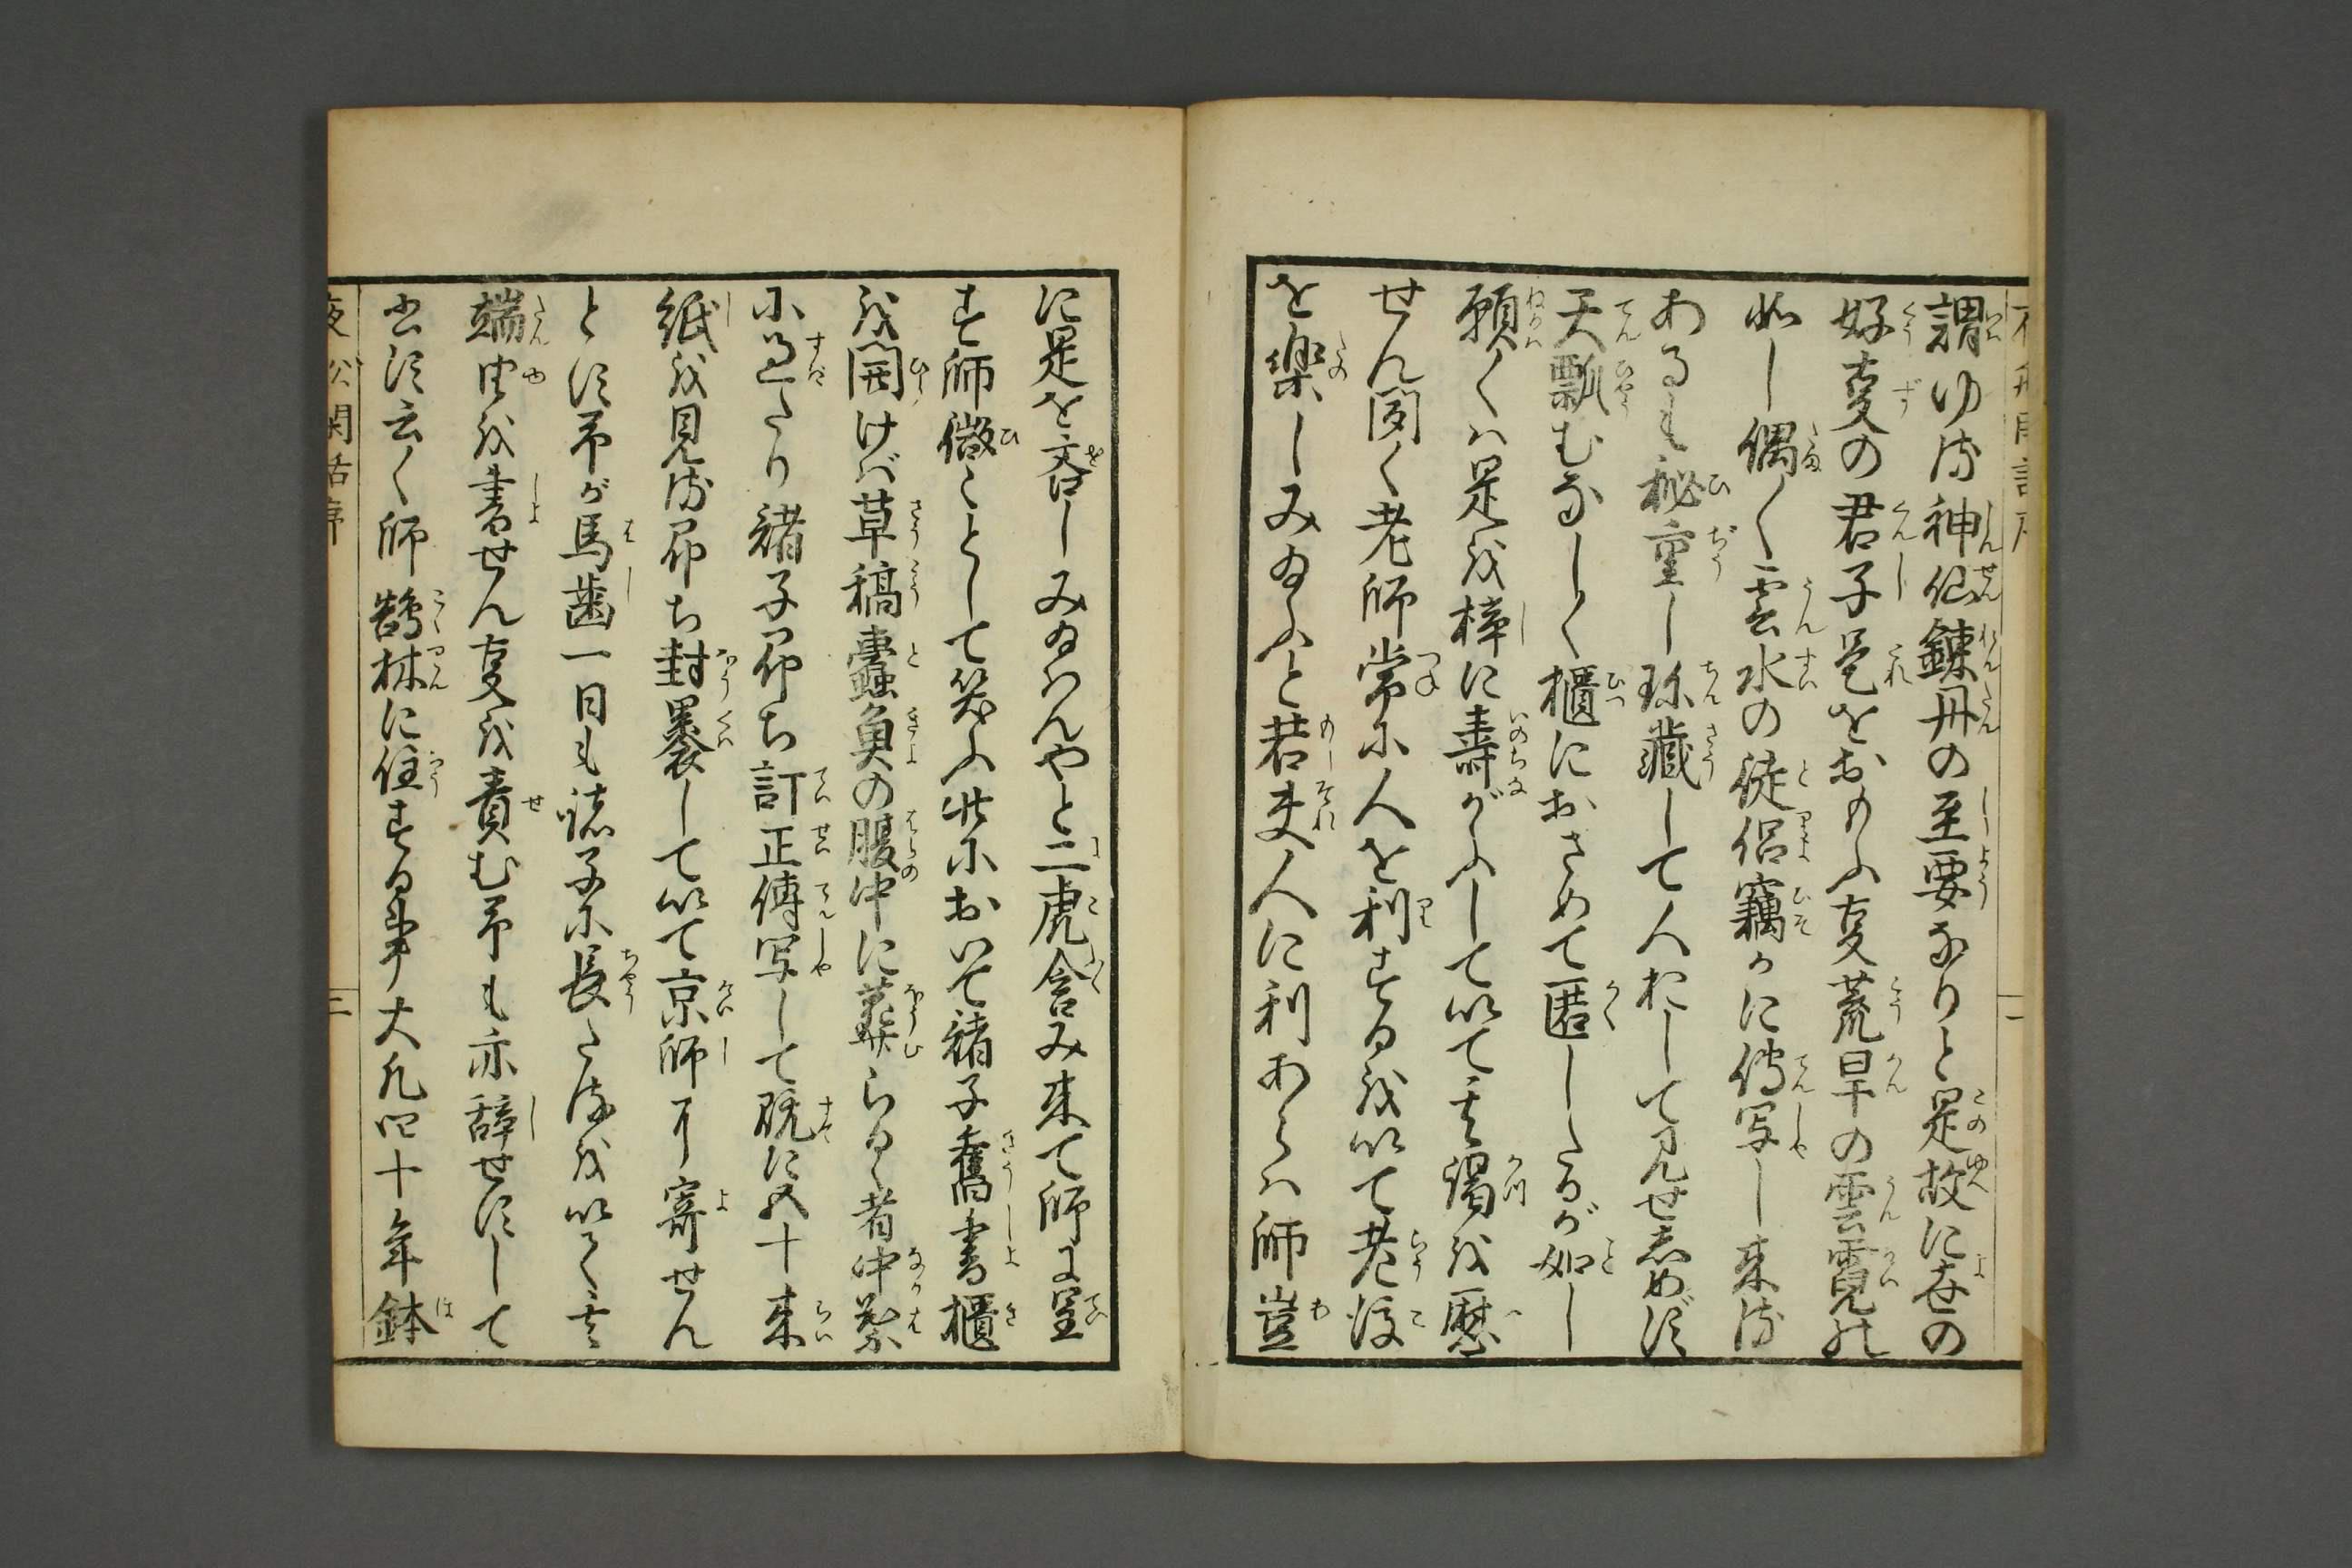 謂ゆる神仙錬丹の至要なりと是故に世の
好事の君子是をおもふ事荒旱の雲霓の
如し偶〱雲水の徒侶竊かに傳写し来る
あるも秘重し珍藏して人おして見せしめず
天瓢むなしく櫃におさめて匿したるが如し
願くは是を梓に壽がふして以て其渇を歴
せん聞く老師常に人を利するを以て老後
を楽しみ給ふと若夫人に利あらは師豈
に是を吝しみ給はんやと二虎含み来て師に呈
す師微〻として笑ふ於是諸子舊書櫃
を開けば草稿蠹魚の腹中に葬らるゝ者中葉
に過たり諸子即ち訂正傳写して既に五十来
紙を見る即ち封裹して以て京師に寄せん
とす予が馬歯一日も諸子に長たるを以て其
端由を書せん事を責む予も亦辞せずして
書す云く師鵠林に住する事大凡四十年鉢
夜船閑話序
二